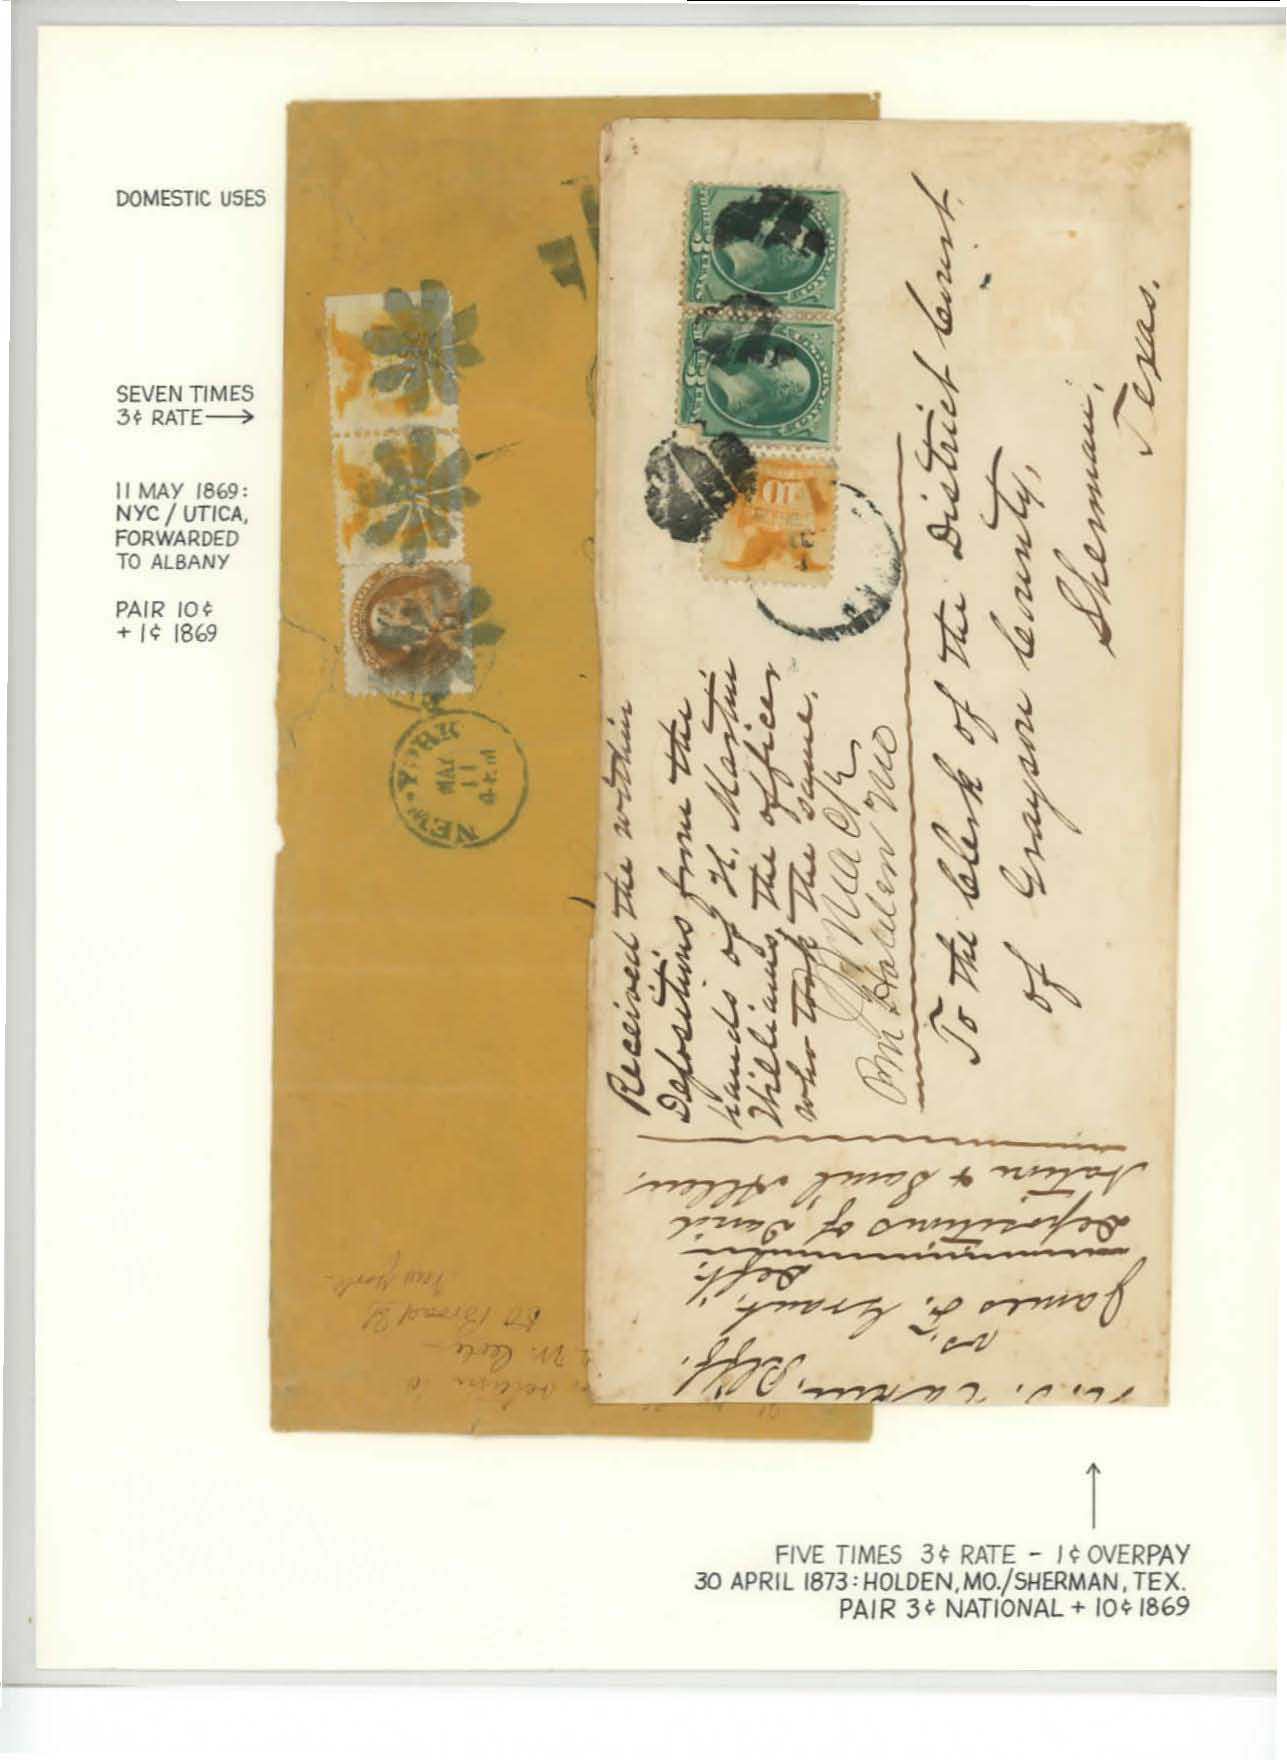 DOMESTIC USES
SEVEN TIMES
3¢ RATE →
11 MAY 1869:
NYC / UTICA,
FORWARDED
TO ALBANY
PAIR 10¢
+ 1¢ 1869
NEW-YORK
MAY
11
4 PM
return to
W. Cole
50 Broad St
New York
Received the within
Depositions from the
hands of H. Martin
Williams, the officer
who took the same.
PM Holden Mo
To the Clerk of the District Court
of Grayson County,
Sherman,
Texas.
Plff.
vs.
James F. Grant,
Deft.
Depositions of David
Nation & Saml Allen.
FIVE TIMES 3¢ RATE - 1¢ OVERPAY
30 APRIL 1873: HOLDEN, MO./SHERMAN, TEX.
PAIR 3¢ NATIONAL + 10¢ 1869